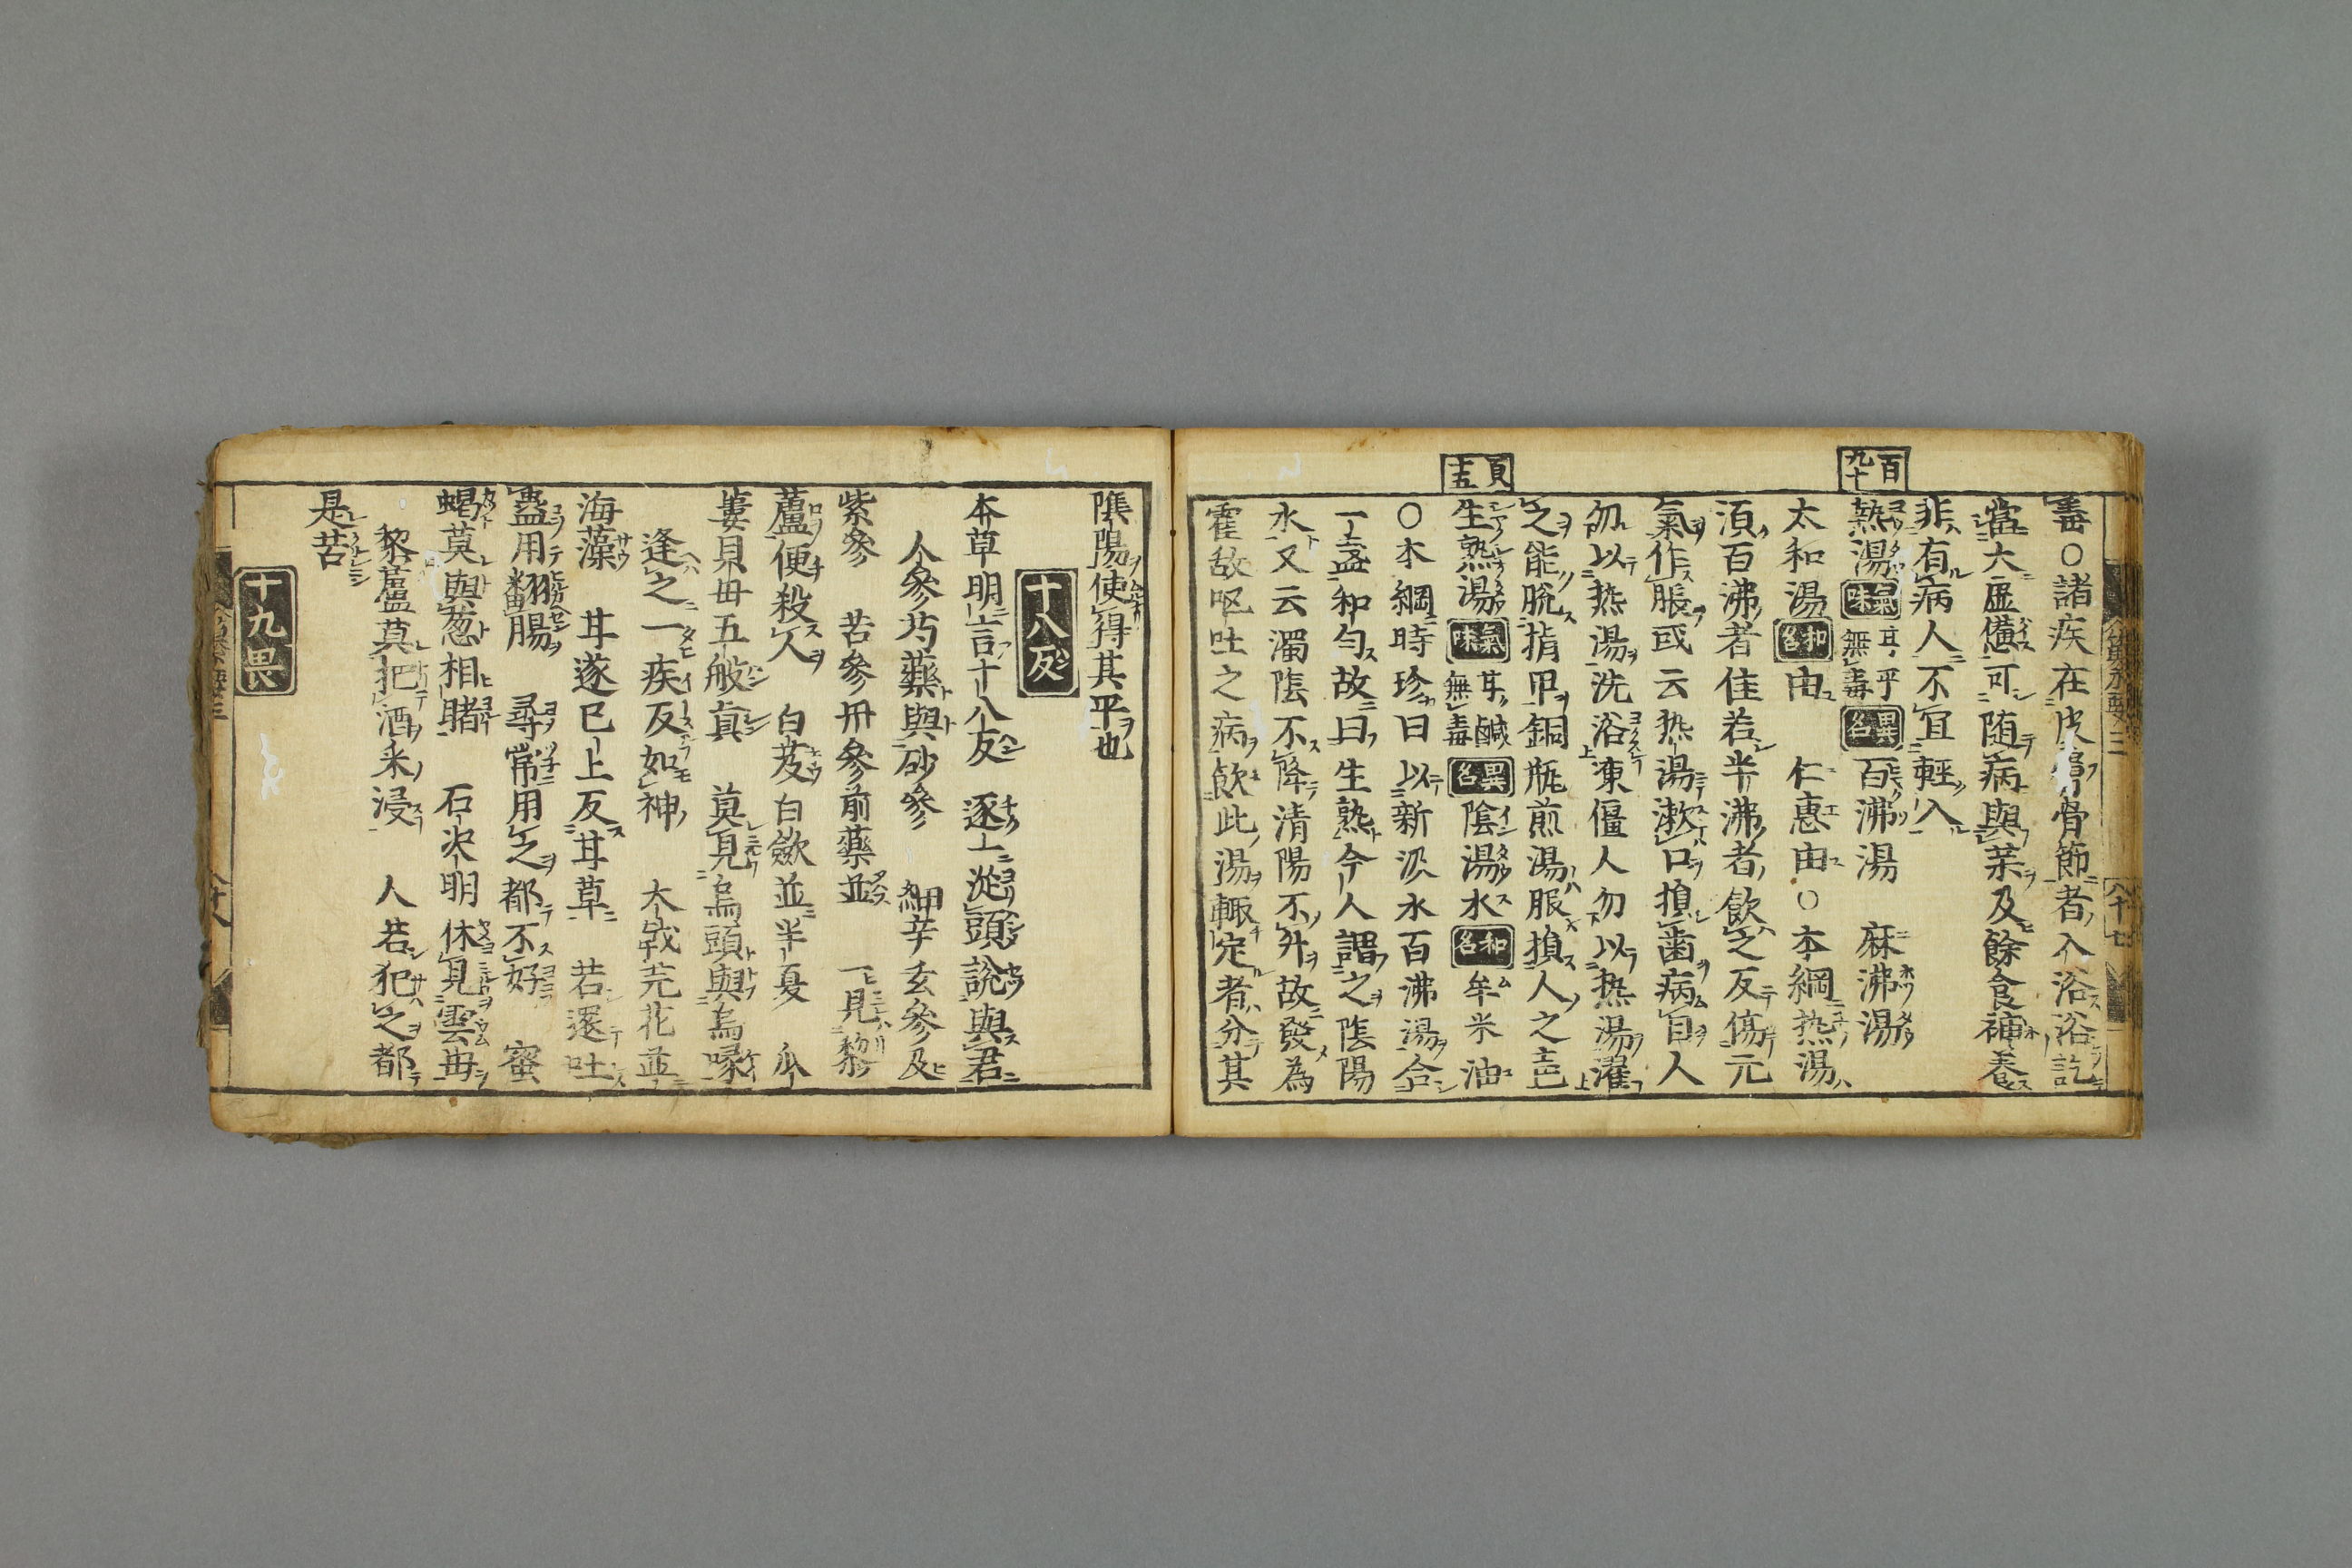 毒〇諸疾在皮膚骨節者入浴浴訖
當大虛憊可随病與茱及餘食補養
非有病人不宜輕入
百九十
熱湯 氣味 甘平無毒 異名 百沸湯 麻沸湯
太和湯 和名 由 仁惠由 〇本綱熱湯
須百沸者佳若半沸者飲之反傷元
氣作脹或云热湯漱口損齒病目人
勿以热湯洗浴凍僵人勿以热湯濯
之能脫指甲銅瓶煎湯服損人之聲
頁五
生熟湯 氣味 甘鹹無毒 異名 陰湯水 和名 牟米油
〇本綱時珍曰以新汲水百沸湯合
一盞和勻故曰生熟今人謂之陰陽
水又云濁陰不降清陽不升故發為
霍亂呕吐之病飲此湯輙定者分其
陰陽使得其平也
十八反
本草明言十八反 逐一從頭說與君
人參芍藥與砂參 細辛玄參及
紫參 苦參丹參前藥並 一見黎
蘆便殺人 白芨白歛並半夏 瓜
蔞貝毋五般真 莫見烏頭與烏喙
逢之一疾反如神 大戟芫花並
海藻 甘遂巳上反甘草 若還吐
蠱用翻腸 尋常用之都不好 蜜
蝎莫與葱相睹 石决明休見雲毋
黎蘆莫把酒来浸 人若犯之都
是苦
十九畏